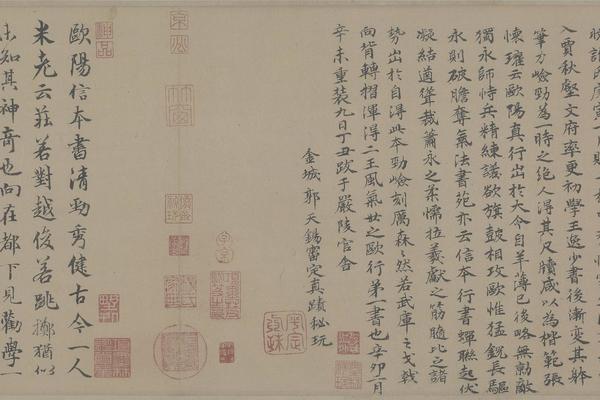 入賈秋壑文府率更初學王逸少書後漸變其躰
筆力嶮勁為一時之絶人得其尺牘咸以為楷範張
懷瓘云歐陽真行出於大令自羊薄已後略無勍敵
獨永師恃兵精練議欲旗鼓相攻歐惟猛銳長驅
永則破膽奪氣法書苑亦云信本行書蟬聯起伏
凝結遒聳裁蕭永之柔懦拉羲獻之筋髓比之諸
勢出於自得此本勁嶮刻厲森森然若武庫之戈戟
向背轉摺渾得二王風氣世之歐行第一書也辛卯一月
辛未重装九日丁丑跋于嚴陵官舍
金城郭天錫審定真蹟秘玩
神品
歐陽信本書清勁秀健古今一人
米老云莊若對越俊若跳擲猶似
未知其神奇也向在都下見勸學一